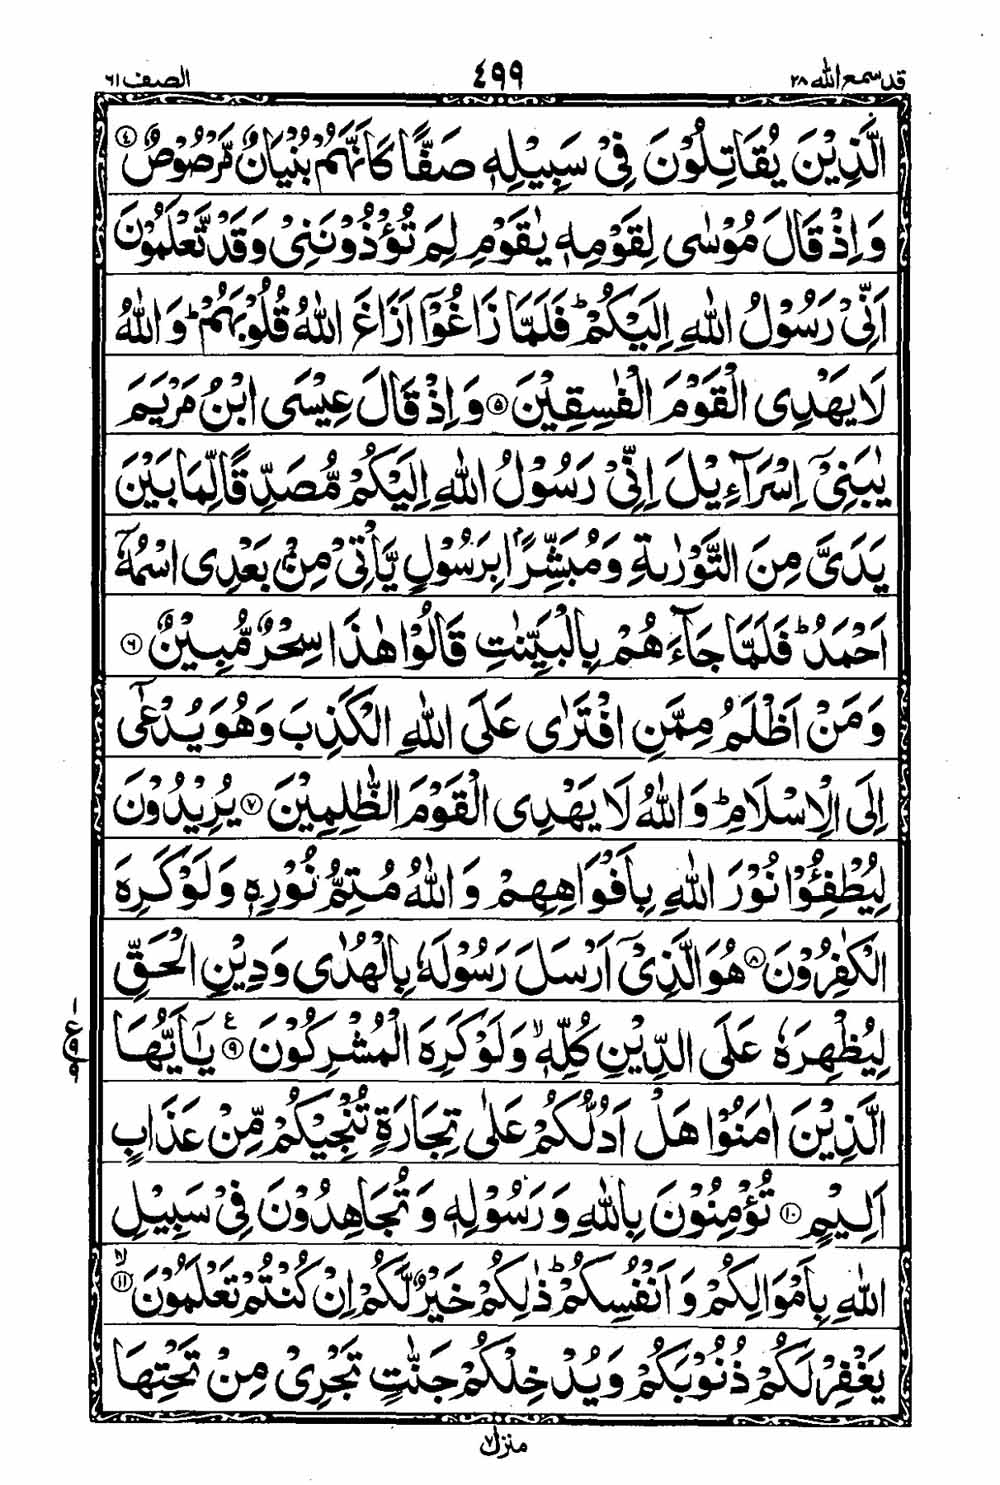 قد سمع الله ٢٨ ٤٩٩ الصف ٦١
الَّذِيْنَ يُقَاتِلُوْنَ فِيْ سَبِيْلِهٖ صَفًّا كَاَنَّهُمْ بُنْيَانٌ مَّرْصُوْصٌ ۝٤
وَاِذْ قَالَ مُوْسٰى لِقَوْمِهٖ يٰقَوْمِ لِمَ تُؤْذُوْنَنِيْ وَقَدْ تَّعْلَمُوْنَ
اَنِّيْ رَسُوْلُ اللّٰهِ اِلَيْكُمْ ؕ فَلَمَّا زَاغُوْٓا اَزَاغَ اللّٰهُ قُلُوْبَهُمْ ؕ وَاللّٰهُ
لَا يَهْدِي الْقَوْمَ الْفٰسِقِيْنَ ۝٥ وَاِذْ قَالَ عِيْسَى ابْنُ مَرْيَمَ
يٰبَنِيْٓ اِسْرَآءِيْلَ اِنِّيْ رَسُوْلُ اللّٰهِ اِلَيْكُمْ مُّصَدِّقًا لِّمَا بَيْنَ
يَدَيَّ مِنَ التَّوْرٰىةِ وَمُبَشِّرًۢا بِرَسُوْلٍ يَّاْتِيْ مِنْۢ بَعْدِي اسْمُهٗٓ
اَحْمَدُ ؕ فَلَمَّا جَآءَهُمْ بِالْبَيِّنٰتِ قَالُوْا هٰذَا سِحْرٌ مُّبِيْنٌ ۝٦
وَمَنْ اَظْلَمُ مِمَّنِ افْتَرٰى عَلَى اللّٰهِ الْكَذِبَ وَهُوَ يُدْعٰٓى
اِلَى الْاِسْلَامِ ؕ وَاللّٰهُ لَا يَهْدِي الْقَوْمَ الظّٰلِمِيْنَ ۝٧ يُرِيْدُوْنَ
لِيُطْفِـُٔوْا نُوْرَ اللّٰهِ بِاَفْوَاهِهِمْ وَاللّٰهُ مُتِمُّ نُوْرِهٖ وَلَوْ كَرِهَ
الْكٰفِرُوْنَ ۝٨ هُوَ الَّذِيْٓ اَرْسَلَ رَسُوْلَهٗ بِالْهُدٰى وَدِيْنِ الْحَقِّ
لِيُظْهِرَهٗ عَلَى الدِّيْنِ كُلِّهٖ ۙ وَلَوْ كَرِهَ الْمُشْرِكُوْنَ ۝٩ ع يٰٓاَيُّهَا
الَّذِيْنَ اٰمَنُوْا هَلْ اَدُلُّكُمْ عَلٰى تِجَارَةٍ تُنْجِيْكُمْ مِّنْ عَذَابٍ
اَلِيْمٍ ۝١٠ تُؤْمِنُوْنَ بِاللّٰهِ وَرَسُوْلِهٖ وَتُجَاهِدُوْنَ فِيْ سَبِيْلِ
اللّٰهِ بِاَمْوَالِكُمْ وَاَنْفُسِكُمْ ؕ ذٰلِكُمْ خَيْرٌ لَّكُمْ اِنْ كُنْتُمْ تَعْلَمُوْنَ ۝١١ ۙ
يَغْفِرْ لَكُمْ ذُنُوْبَكُمْ وَيُدْخِلْكُمْ جَنّٰتٍ تَجْرِيْ مِنْ تَحْتِهَا
منزل ٧